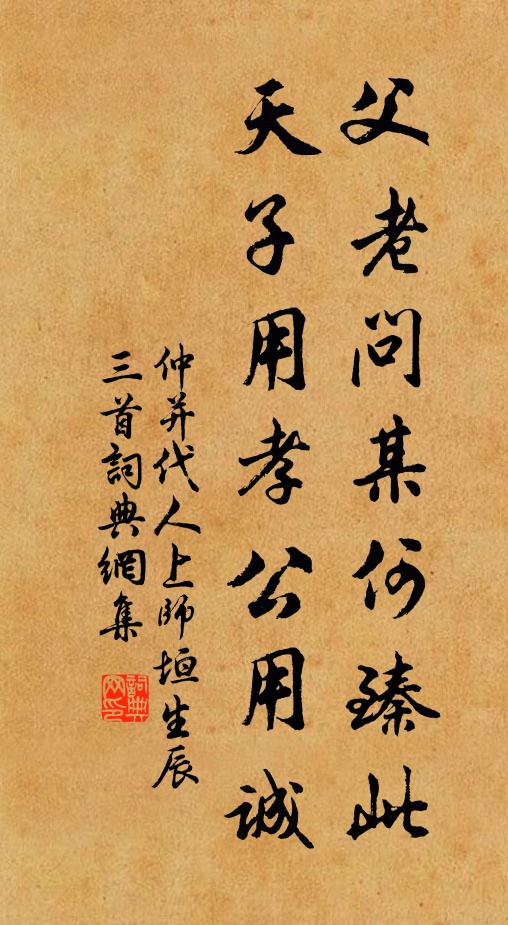 父老問某何臻此
天子用孝公用誠
仲并代人上師垣生辰
三首詞典網集
詞典
网印